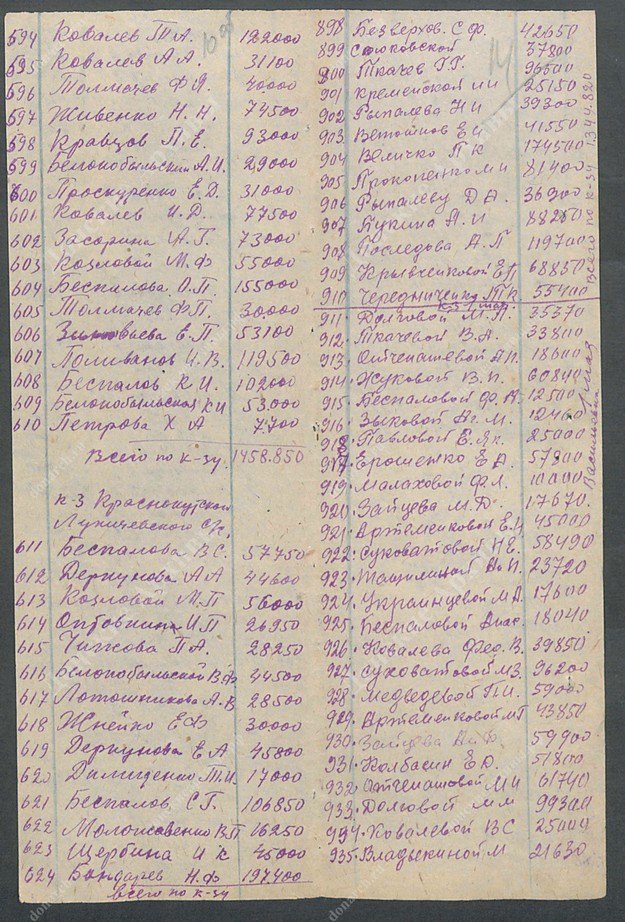 594 Ковалев Т А. 122000
595 Ковалев А А. 31100
596 Толмачев Ф Я. 40000
597 Живенко Н. Н. 74500
598 Кравцов П. Е. 93000
599 Белокобыльский А. И. 29000
600 Проскуренко Е. Д. 31000
601 Ковалев И. Д. 77500
602 Засорина А. Г. 73000
603 Козловой М. Ф 55000
604 Беспалова О. П. 155000
605 Толмачев Ф П. 30000
606 Зиновьева Е. П. 53100
607 Поливанов И. В. 119500
608 Беспалов К И. 102000
609 Белокобыльская К И 53000
610 Петрова Х А 7700
Всего по к-зу. 1458.850
к-з Краснокутский
611 Беспалова В С. 57750
612 Деркунова А А 44600
613 Козловой М. П 56000
614 И П 26950
615 Чижова П А. 28250
616 Белокобыльской В Ф 44500
617 Лотошникова А. В 28500
618 Жнейко Е Ф 30000
619 Деркунова Е А 45800
620 Демиденко Т. И. 17000
621 Беспалов С Г. 106850
622 В П 16250
623 Щербина И К 45000
624 Бондарев Н. Ф 197400
всего по к-зу
10
14
898 Безверхов. С Ф. 42650
899 37800
900 Ткачев Г. Г. 96500
901 Кременской И И 25150
902 Рыпалева Н И 39300
903 Е И 41550
904 Величко П К 174500
905 Прокопенко М И 81400
906 Рыпалеву Д А. 36900
907 Букина П. И 88250
908 Последова А. П 119700
909 Крывченковой Е П 68850
910 Чередниченко П К 55400
911. Долговой М. А. 35370
912. Ткачевой В. А. 33800
913. Отченашевой А П. 18600
914. Жуковой В. П. 60840
915. Беспаловой Ф. П. 12500
916. Зыковой А. М. 12400
918. Павловой Е. Як. 25000
917. Ерошенко Е А. 57800
919. Малаховой Ф А. 10000
920. Зайцева М. Д. 17670
921. Артеменковой Е. Н 45000
922. Суховатовой Н Е. 58490
923. А П. 23720
924. Украинцевой М А. 17600
925. Беспаловой Анас. 18040
926. Ковалева Фед. В. 39850
927. Суховатовой М З. 96200
928. Медведевой П. И. 59000
929. Артеменковой М Г 43850
930. Зайцева А. Ф. 59900
931. Колбасин Е О. 51800
932. Отченашовой М И 61740
933. Долговой М М 99300
934. Ковалевой В С 25000
935. Владыкиной М 21630
Всего по к-зу 1.344.820